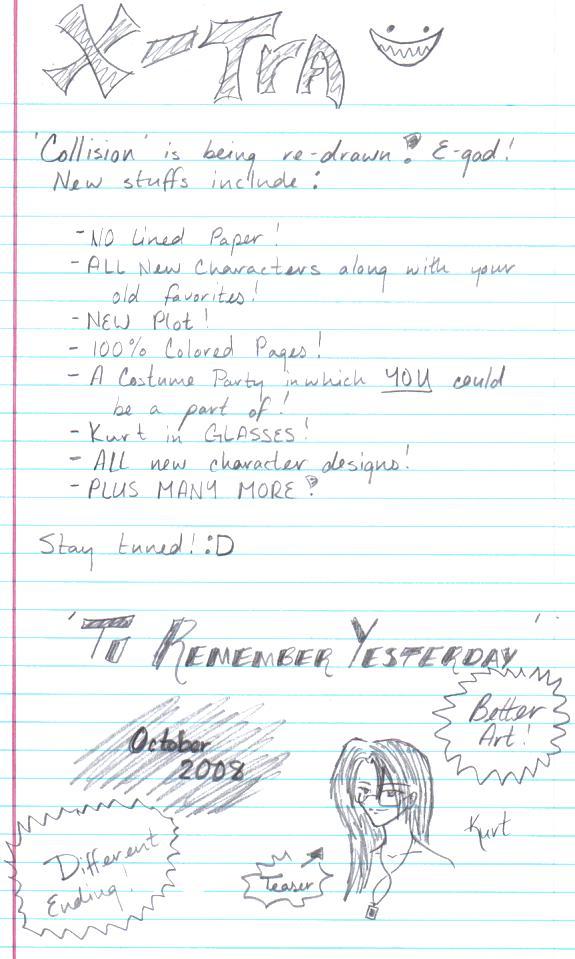 X-Tra
'Collision' is being re-drawn! E-gad!
New stuffs include:
-NO Lined Paper!
-ALL New Characters along with your
old favorites!
-NEW Plot!
- 100% Colored Pages!
- A Costume Party in which YOU could
be a part of!
- Kurt in GLASSES!
- ALL new character designs!
- PLUS MANY MORE!
Stay tuned! :D
'To Remember Yesterday'
Better
Art!
October
2008
Kurt
Different
Ending!
Teaser